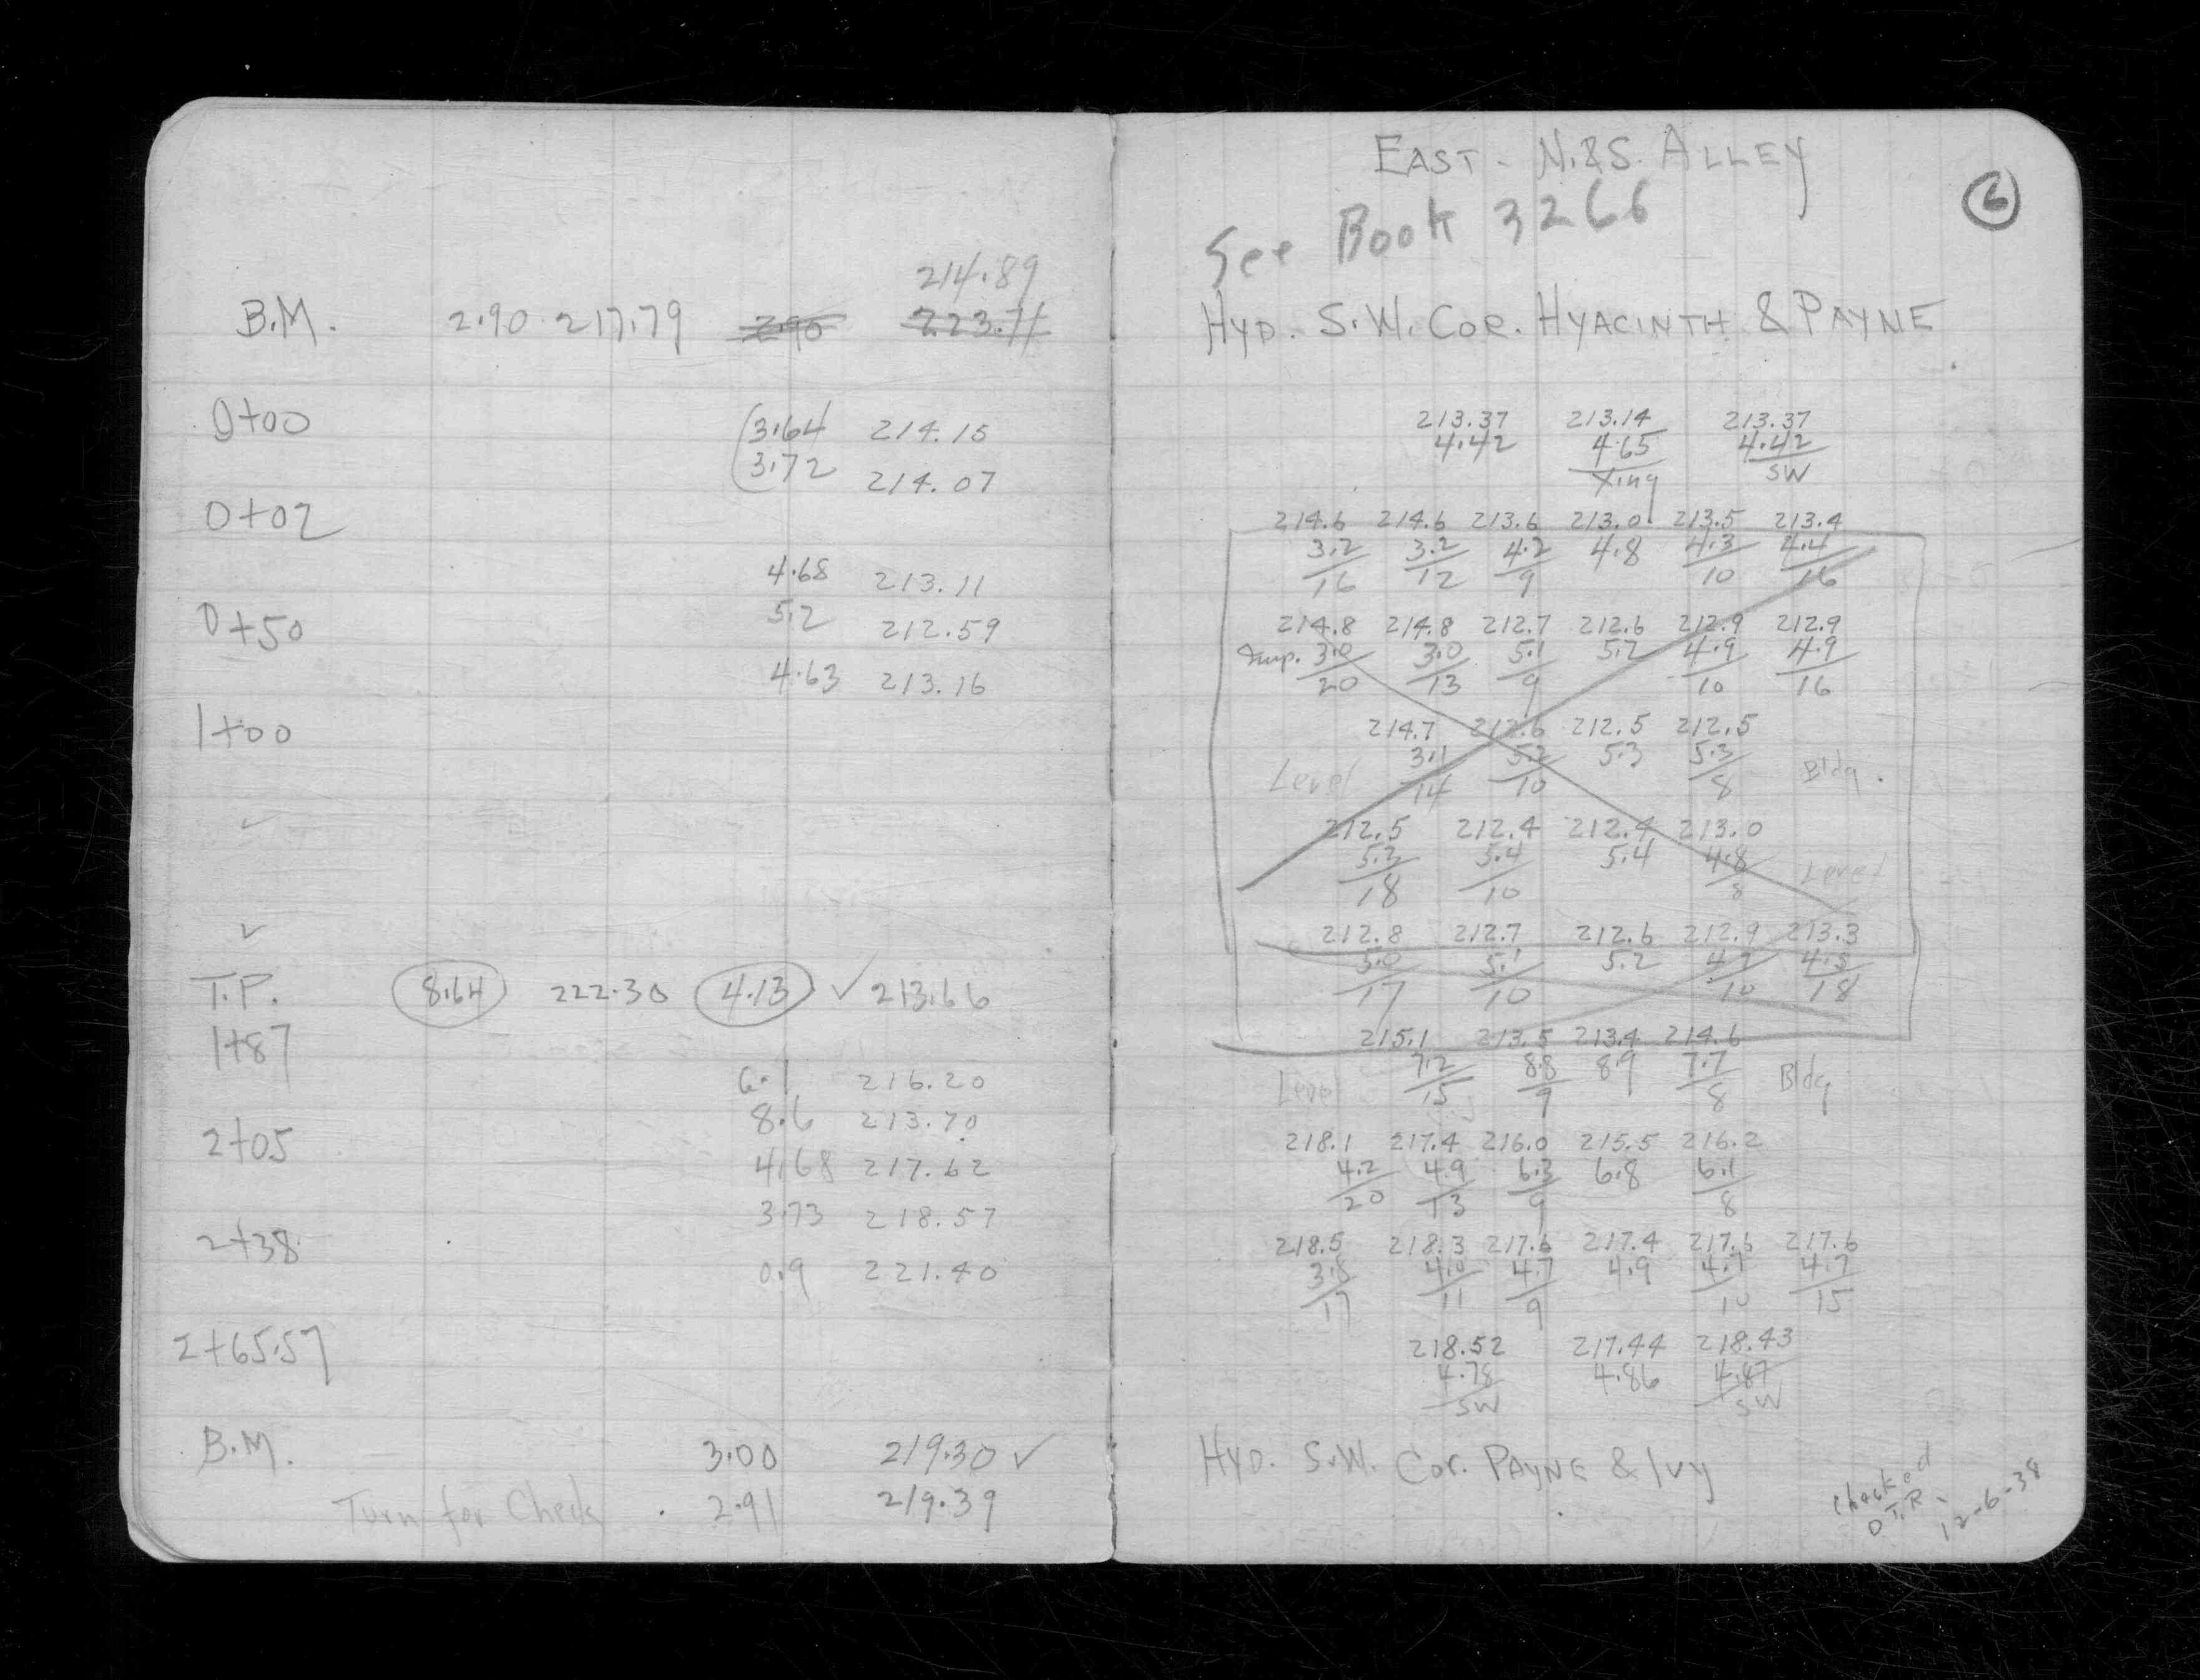 214.89
B.M. 2.90 217.79 2.90 223.71
0+00 3.64 214.15
3.72 214.07
0+02
4.68 213.11
5.2 212.59
0+50
4.63 213.16
1+00
T.P. 8.64 222.30 4.13 ✓ 213.66
1+87
6.1 216.20
8.6 213.70
2+05
4.68 217.62
3.73 218.57
2+38
0.9 221.40
2+65.57
B.M. 3.00 219.30 ✓
Turn for Check 2.91 219.39
EAST - N.&S. ALLEY
6
See Book 3266
HYD. S.W. COR. HYACINTH & PAYNE
213.37 213.14 213.37
4.42 4.65 4.42
Xing SW
214.6 214.6 213.6 213.0 213.5 213.4
3.2 3.2 4.2 4.8 4.3 4.4
16 12 9 10 16
214.8 214.8 212.7 212.6 212.9 212.9
3.0 3.0 5.1 5.2 4.9 4.9
20 13 9 10 16
214.7 212.6 212.5 212.5
Level 3.1 5.2 5.3 5.3 Bldg.
14 10 8
212.5 212.4 212.4 213.0
5.3 5.4 5.4 4.8 Level
18 10 8
212.8 212.7 212.6 212.9 213.3
5.0 5.1 5.2 4.9 4.5
17 10 10 18
215.1 213.5 213.4 214.6
Level 7.2 8.8 8.9 7.7 Bldg
15 9 8
218.1 217.4 216.0 215.5 216.2
4.2 4.9 6.3 6.8 6.1
20 13 9 8
218.5 218.3 217.6 217.4 217.6 217.6
3.8 4.0 4.7 4.9 4.7 4.7
17 11 9 10 15
218.52 217.44 218.43
4.78 4.86 4.87
SW SW
HYD. S.W. Cor. PAYNE & IVY
Checked
O.T.R.
12-6-38